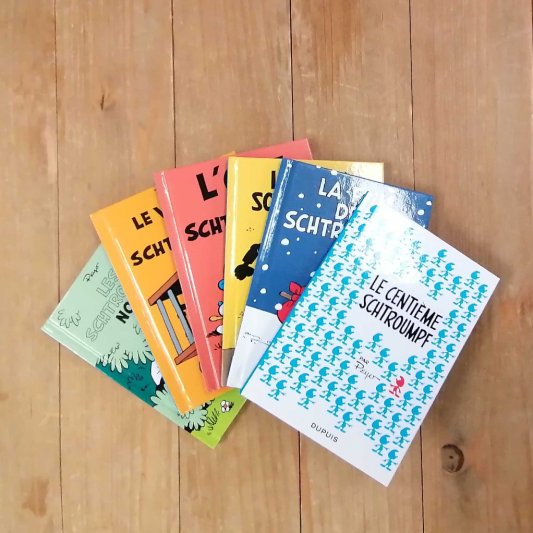 Peyo
LES
SCHTRO
NO
LE V
SCHT
L'
SCHT
L
SO
LA
D
SCHTR
LE CENTIÈME
SCHTROUMPF
PAR
Peyo
DUPUIS